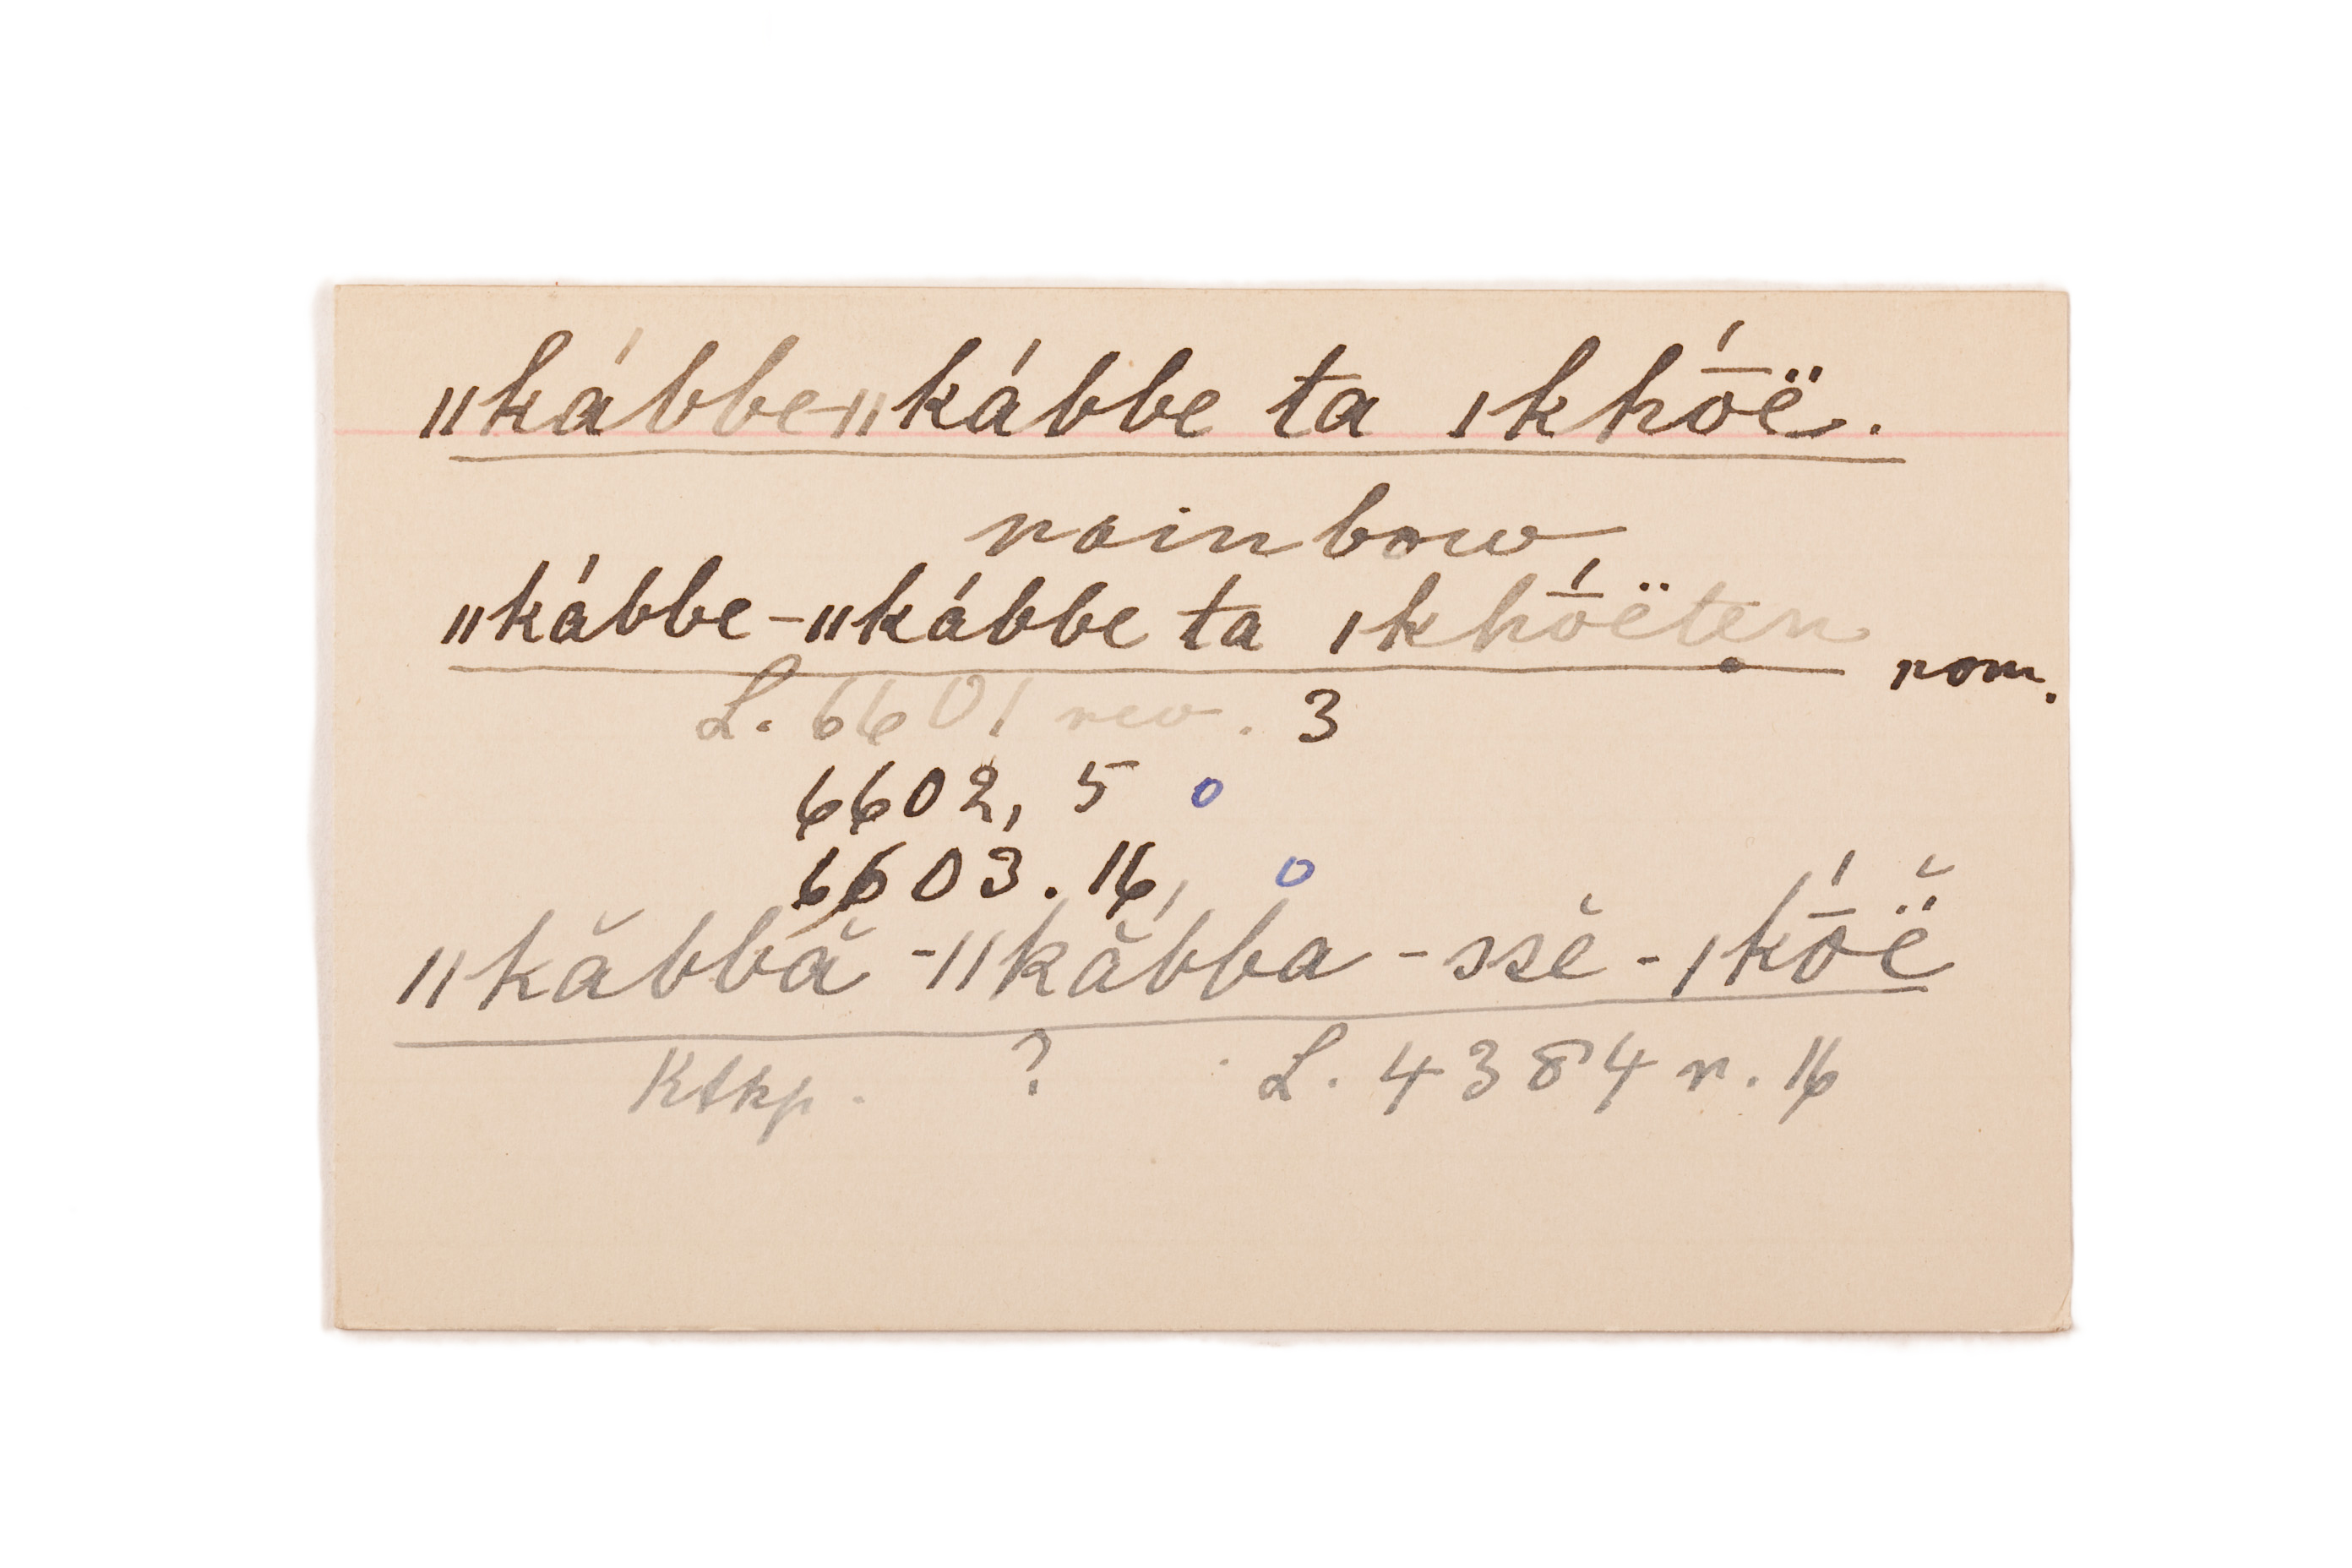 ǁkábbe-ǁkábbe ta ǀkhṓë.
rainbow
ǁkábbe-ǁkábbe ta ǀkhṓëten nom.
L. 6601 rev. 3
6602, 5 o
6603. 16, o
ǁkăbbă-ǁkăbba-ssĕ-ǀkṓë̆
Ktkp. ? L. 4384 r. 16